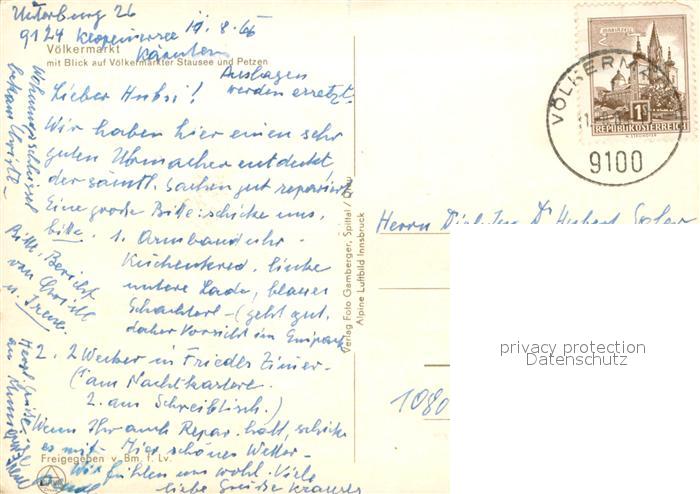 Unterburg 26
9124 Klopeinersee 11.8.66
Kärnten
Völkermarkt
mit Blick auf Völkermarkter Stausee und Petzen
Auslagen
werden ersetzt
Lieber Hubsi!
Wir haben hier einen sehr
guten Uhrmacher entdeckt,
der sämtl. Sachen gut repariert.
Eine große Bitte: schicke uns,
bitte.
1. Armbanduhr -
Küchenkred. linke
untere Lade, blaues
Schachterl - (geht gut,
daher Vorsicht im Einpack
2. 2 Wecker in Friedls Zimer -
(1 am Nachtkastere
2. am Schreibtisch.)
Wenn Ihr auch Repar. habt, schicke
es mit. Hier schönes Wetter -
Wir fühlen uns wohl. Viele
liebe Grüße
Wohnungsschlüssel
bekam Christl -
Bitte, Bericht
von Christl
u.
Freigegeben v. Bm. f. Lv.
Verlag Foto Gamberger, Spittal / Drau
Alpine Luftbild Innsbruck
MARIAZELL
1S
REPUBLIK ÖSTERREICH
VÖLKERM
11.
9100
Herrn Dr Hubert
privacy protection
Datenschutz
1080